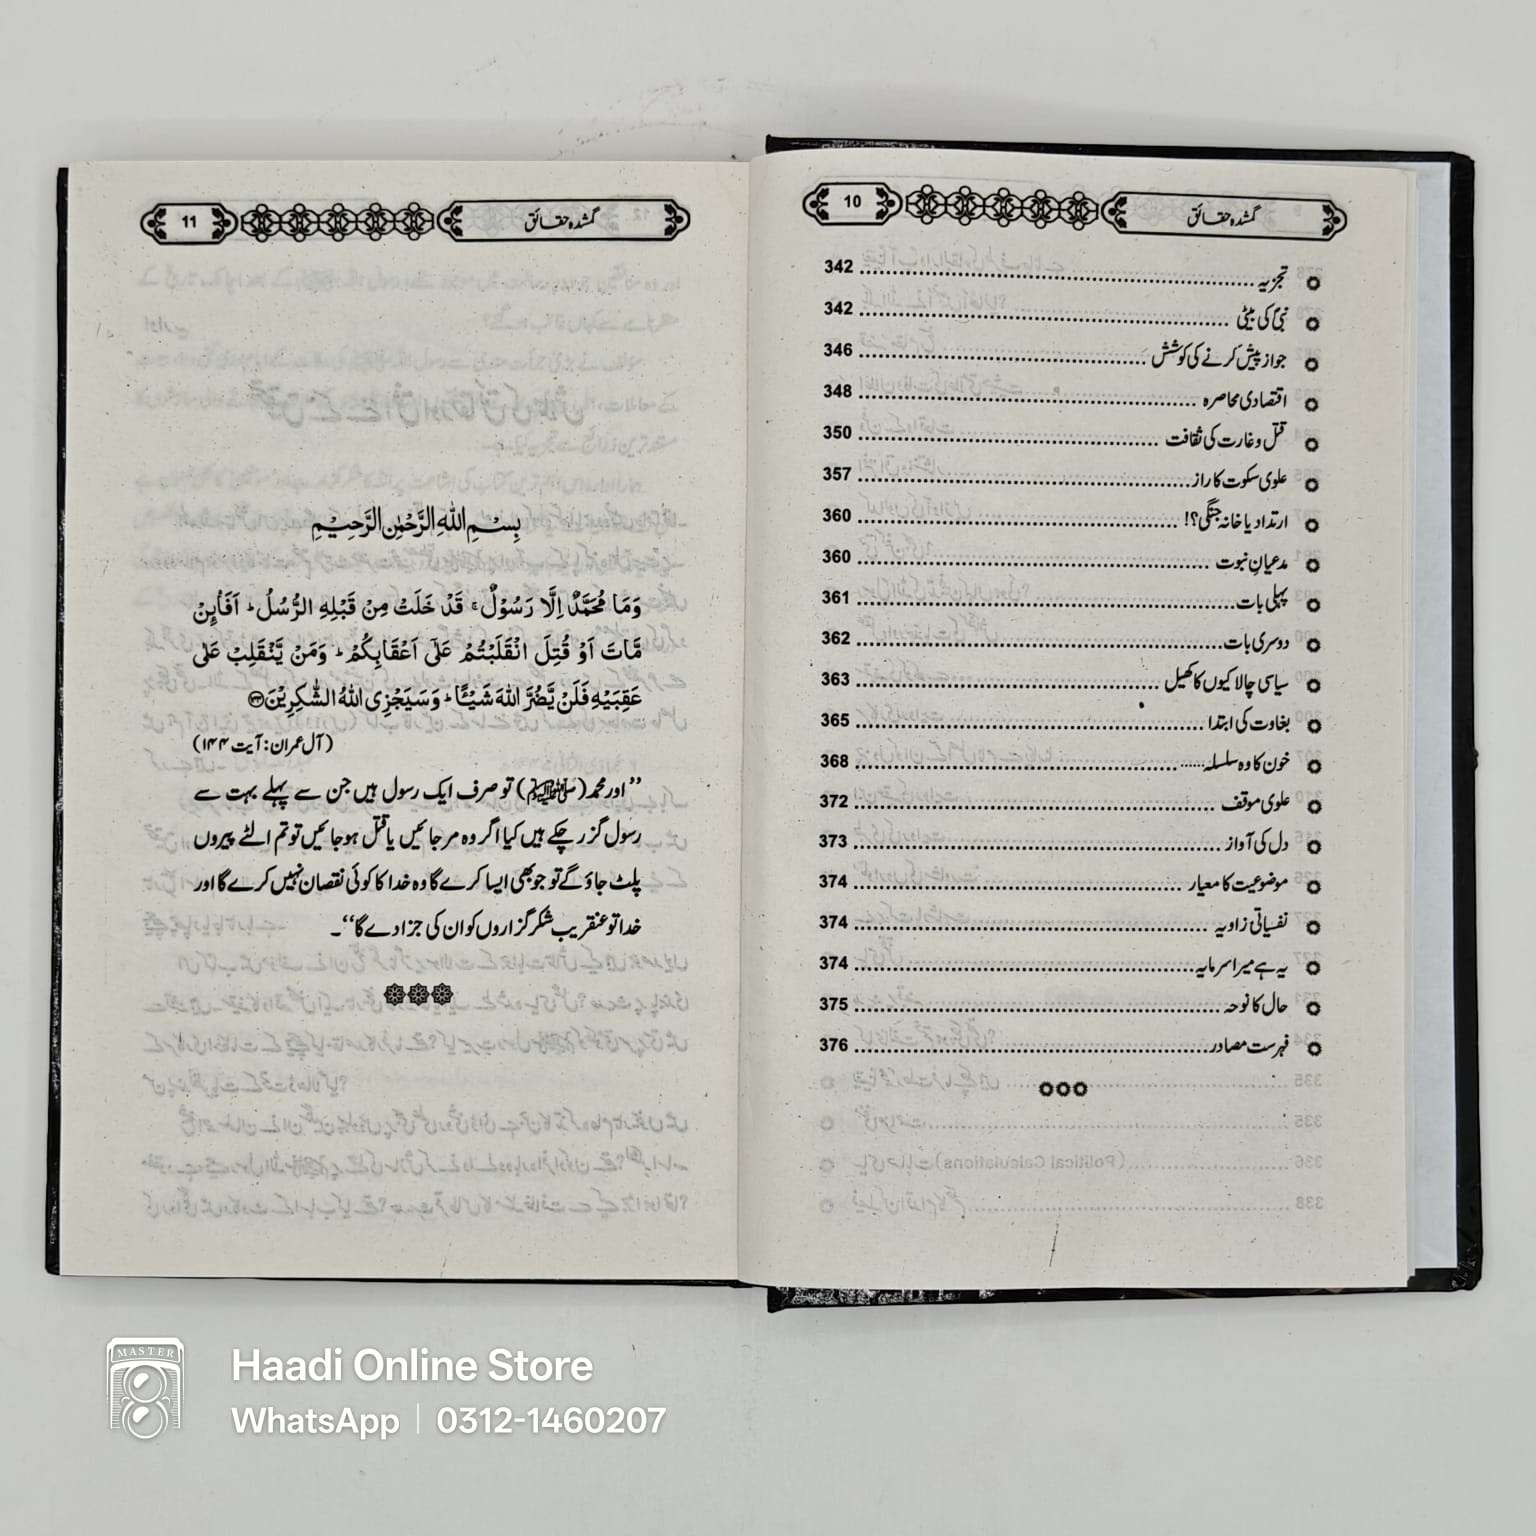 گمشدہ حقائق 10
تجزیہ 342
نبیؐ کی بیٹی 342
جواز پیش کرنے کی کوشش 346
اقتصادی محاصرہ 348
قتل و غارت کی ثقافت 350
علوی سکوت کا راز 357
ارتداد یا خانہ جنگی؟! 360
مدعیانِ نبوت 360
پہلی بات 361
دوسری بات 362
سیاسی چالاکیوں کا کھیل 363
بغاوت کی ابتدا 365
خون کا وہ سلسلہ 368
علوی موقف 372
دل کی آواز 373
موضوعیت کا معیار 374
نفسیاتی زاویہ 374
یہ ہے میرا سرمایہ 374
حال کا نوحہ 375
فہرست مصادر 376
گمشدہ حقائق 11
بِسْمِ اللهِ الرَّحْمٰنِ الرَّحِيْمِ
وَمَا مُحَمَّدٌ اِلَّا رَسُوْلٌ ۚ قَدْ خَلَتْ مِنْ قَبْلِهِ الرُّسُلُ ؕ اَفَا۠ئِنْ
مَّاتَ اَوْ قُتِلَ انْقَلَبْتُمْ عَلٰۤى اَعْقَابِكُمْ ؕ وَمَنْ يَّنْقَلِبْ عَلٰى
عَقِبَيْهِ فَلَنْ يَّضُرَّ اللهَ شَيْـًٔا ؕ وَسَيَجْزِى اللهُ الشّٰكِرِيْنَ ﴿۱۴۴﴾
(آل عمران: آیت ۱۴۴)
”اور محمد (ﷺ) تو صرف ایک رسول ہیں جن سے پہلے بہت سے
رسول گزر چکے ہیں کیا اگر وہ مر جائیں یا قتل ہو جائیں تو تم الٹے پیروں
پلٹ جاؤ گے تو جو بھی ایسا کرے گا وہ خدا کا کوئی نقصان نہیں کرے گا اور
خدا تو عنقریب شکر گزاروں کو ان کی جزا دے گا“۔
MASTER
Haadi Online Store
WhatsApp | 0312-1460207